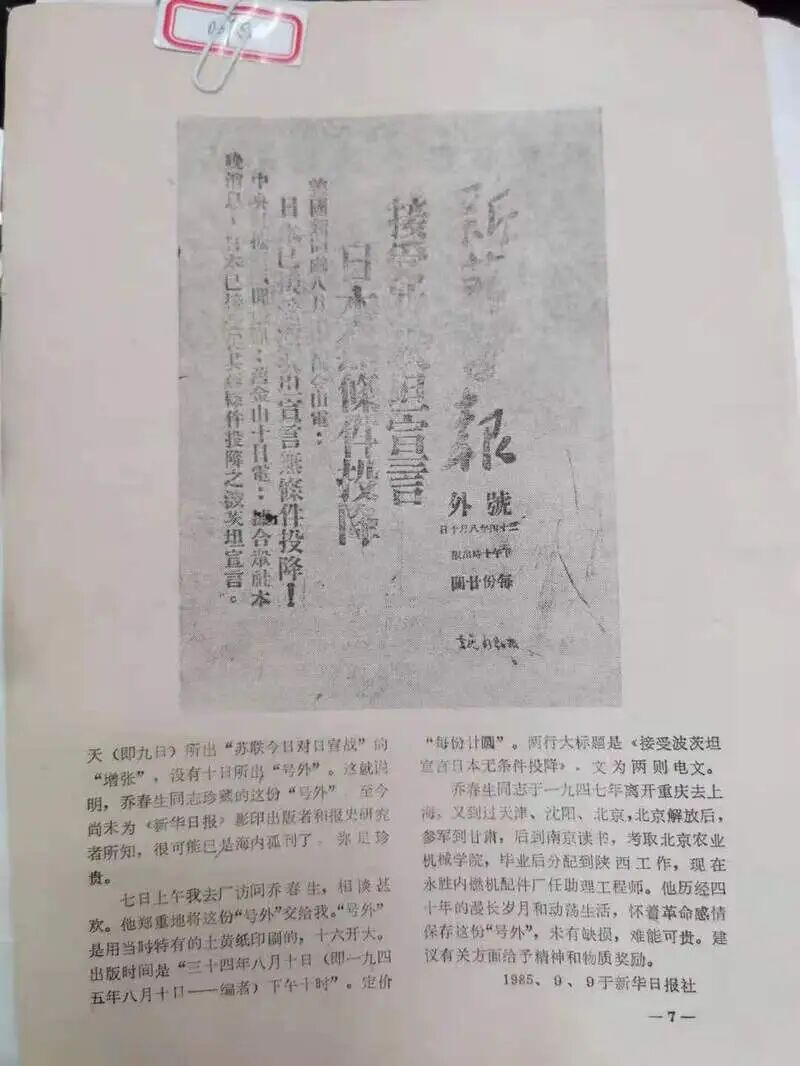 新华日报
號外
三十四年八月十日
下午十時出版
每份廿圓
接受波茨坦宣言
日本無條件投降
美國新聞處八月十日舊金山電：
日本已接受波茨坦宣言無條件投降！
中央社 舊金山十日電：聯合衆社本
晚消息，日本已接受 無條件投降之波茨坦宣言。
天（即九日）所出“苏联今日对日宣战”的
“增张”，没有十日所出“号外”。这就说
明，乔春生同志珍藏的这份“号外”，至今
尚未为《新华日报》影印出版者和报史研究
者所知，很可能已是海内孤刊了，弥足珍
贵。
七日上午我去厂访问乔春生，相谈甚
欢。他郑重地将这份“号外”交给我。“号外”
是用当时特有的土黄纸印刷的，十六开大。
出版时间是“三十四年八月十日（即一九四
五年八月十日——编者）下午十时”。定价
“每份廿圆”。两行大标题是《接受波茨坦
宣言日本无条件投降》。文为两则电文。
乔春生同志于一九四七年离开重庆去上
海，又到过天津、沈阳、北京，北京解放后，
参军到甘肃，后到南京读书，考取北京农业
机械学院，毕业后分配到陕西工作，现在
永胜内燃机配件厂任助理工程师。他历经四
十年的漫长岁月和动荡生活，怀着革命感情
保存这份“号外”，未有缺损，难能可贵。建
议有关方面给予精神和物质奖励。
1985、9、9于新华日报社
—7—